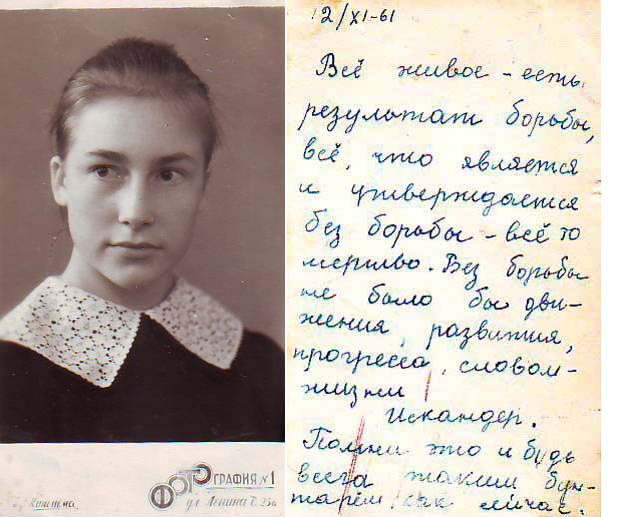 ФОТОГРАФИЯ №1
г. Кинешма
ул. Ленина д. 25а
12/XI-61
Всё живое - есть
результат борьбы,
всё, что является
и утверждается
без борьбы - всё то
мертво. Без борьбы
не было бы дви-
жения, развития,
прогресса, словом-
жизни
Искандер.
Помни это и будь
всегда таким бун-
тарём, как сейчас.